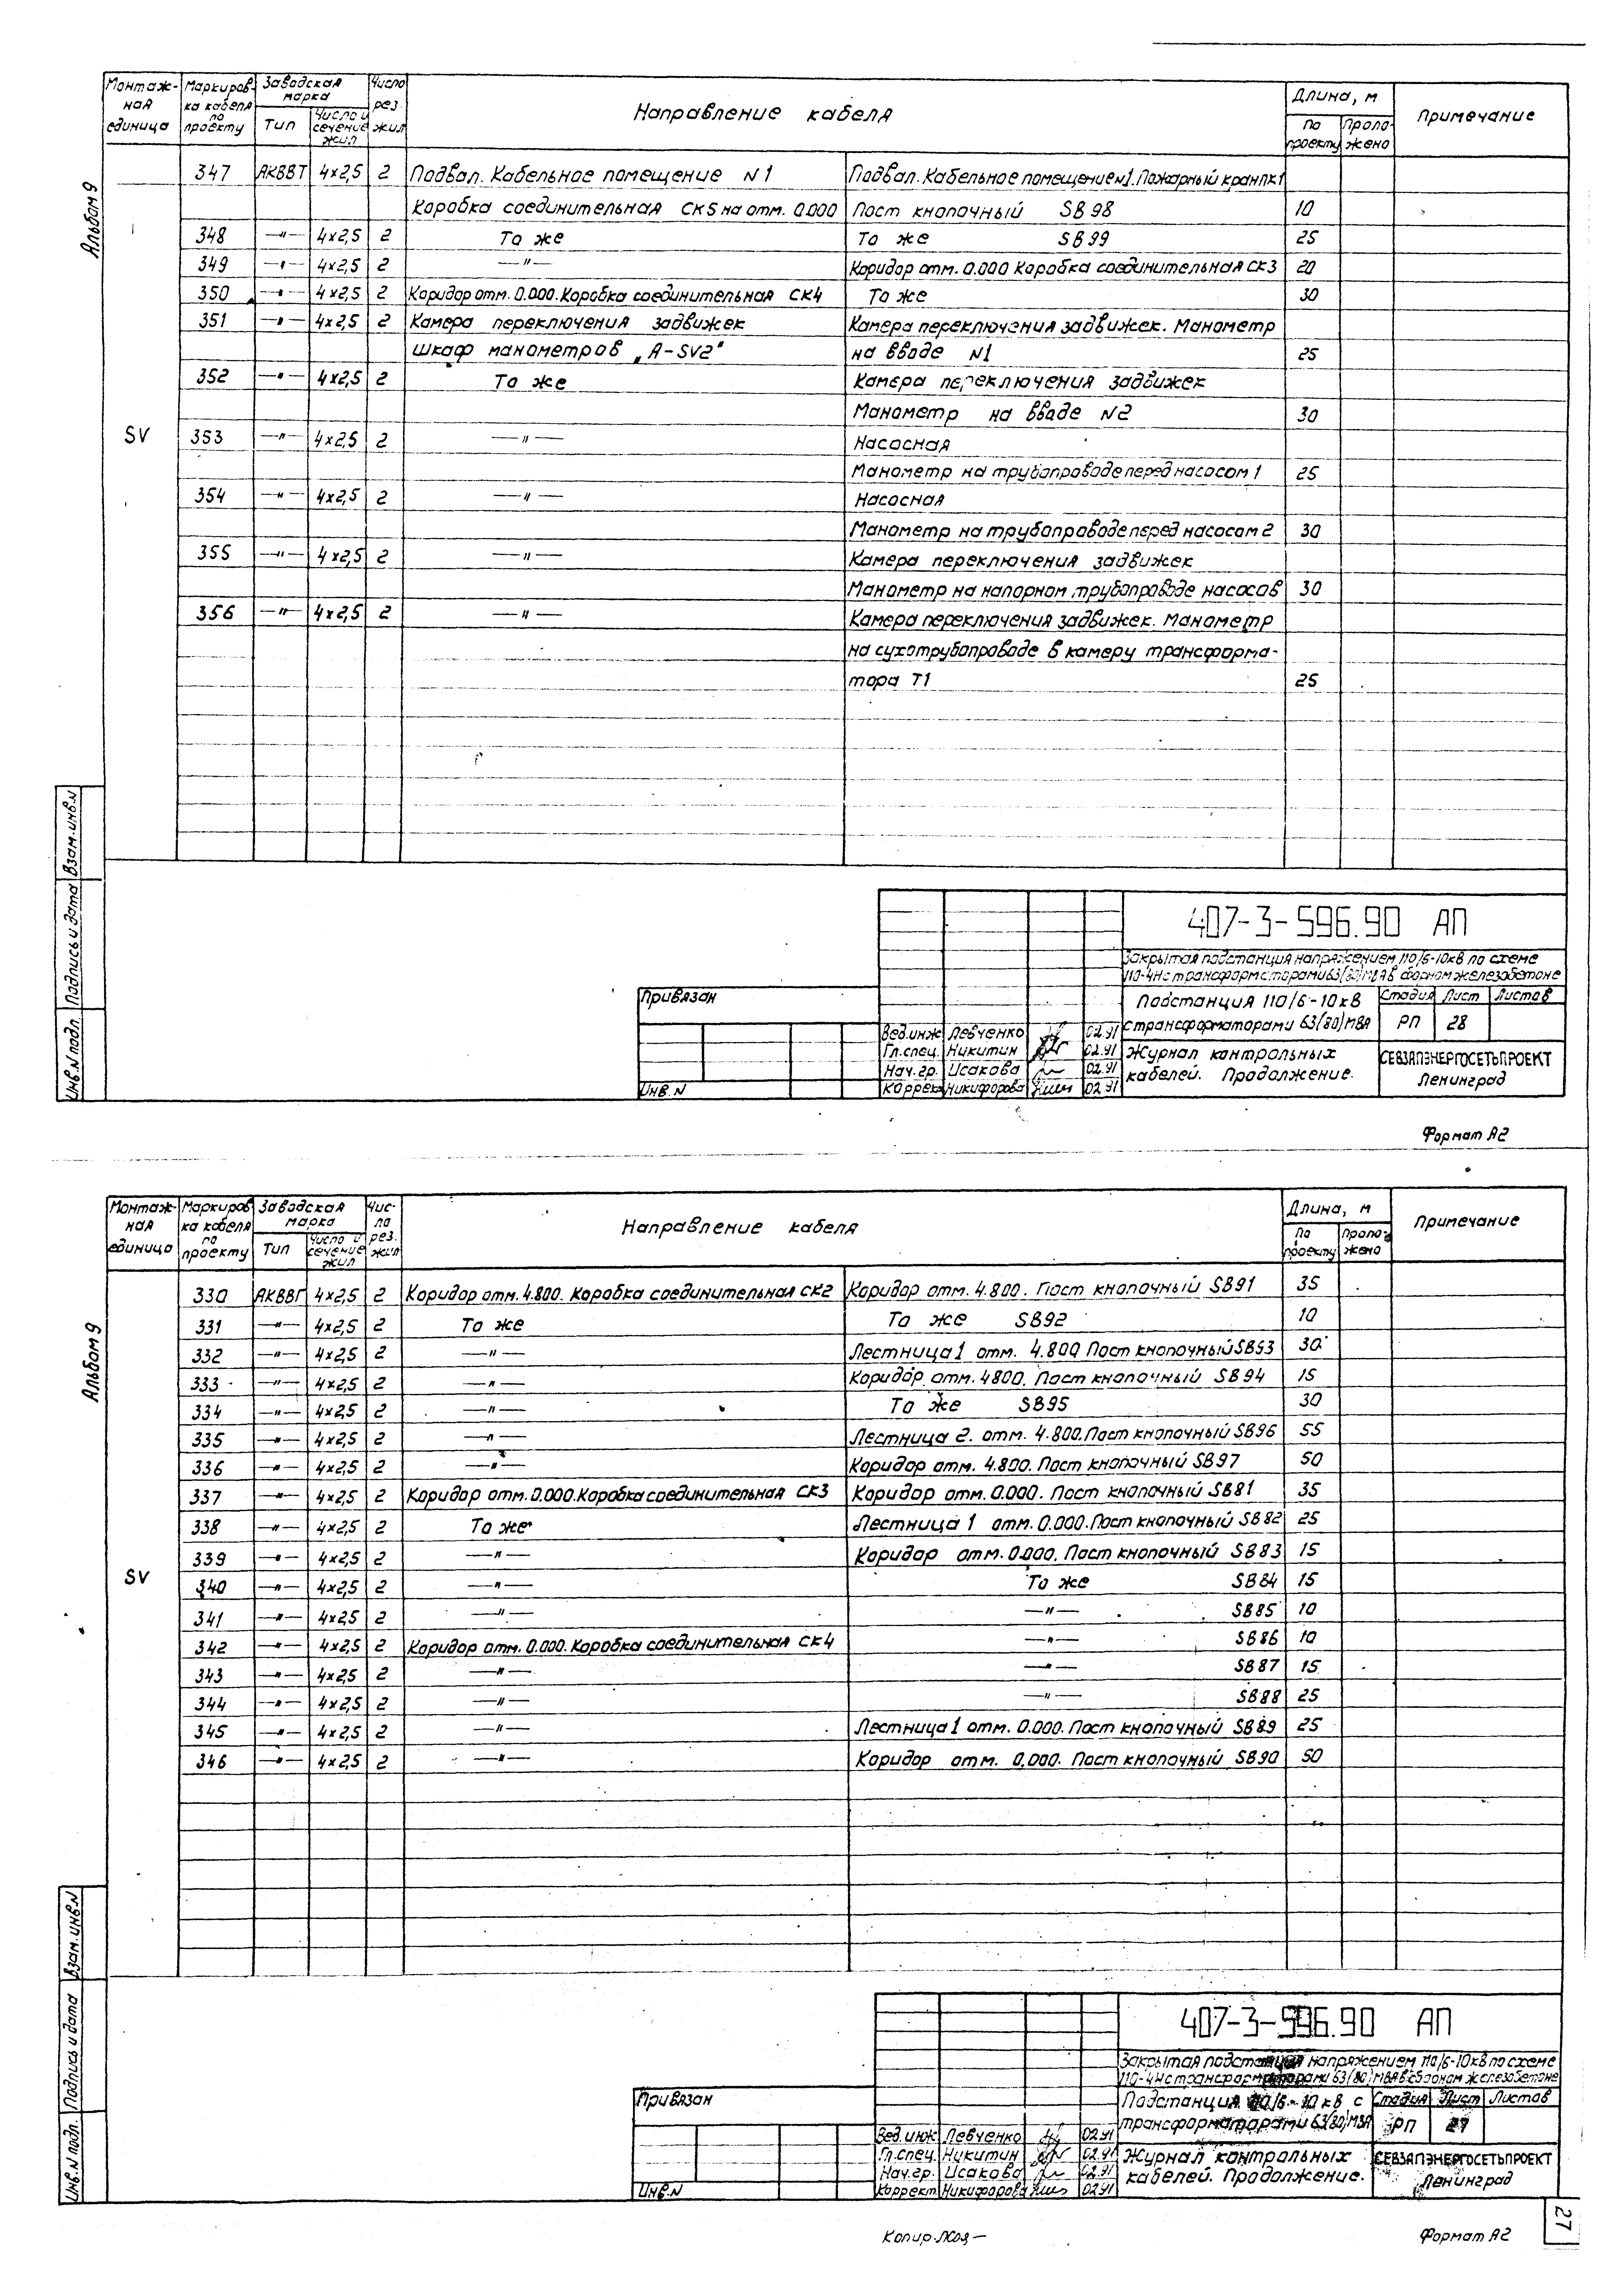 Альбом 9
Монтаж-ная единица | Маркиров-ка кабеля по проекту | Заводская марка | Тип | Число и сечение жил | Число рез. жил | Направление кабеля | Длина, м | По проекту | Проло-жено | Примечание
347 АКВВГ 4×2,5 2 Подвал. Кабельное помещение N1 Подвал. Кабельное помещение N1. Пожарный кран ПК1
Коробка соединительная СК5 на отм. 0.000 Пост кнопочный SB98 10
348 —〃— 4×2,5 2 То же То же SB99 25
349 —〃— 4×2,5 2 —〃— Коридор отм. 0.000 Коробка соединительная СК3 20
350 —〃— 4×2,5 2 Коридор отм. 0.000. Коробка соединительная СК4 То же 30
351 —〃— 4×2,5 2 Камера переключения задвижек Камера переключения задвижек. Манометр
Шкаф манометров „А-SV2" на вводе N1 25
352 —〃— 4×2,5 2 То же Камера переключения задвижек
Манометр на вводе N2 30
SV 353 —〃— 4×2,5 2 —〃— Насосная
Манометр на трубопроводе перед насосом 1 25
354 —〃— 4×2,5 2 —〃— Насосная
Манометр на трубопроводе перед насосом 2 30
355 —〃— 4×2,5 2 —〃— Камера переключения задвижек
Манометр на напорном трубопроводе насосов 30
356 —〃— 4×2,5 2 —〃— Камера переключения задвижек. Манометр
на сухотрубопроводе в камеру трансформа-
тора Т1 25
Инв.N подл. Подпись и дата Взам.инв.N
407-3-596.90 АП
Закрытая подстанция напряжением 110/6-10кВ по схеме
110-4Н с трансформаторами 63(80)МВА в сборном железобетоне
Привязан
Инв.N
Подстанция 110/6-10кВ
с трансформаторами 63(80)МВА
Стадия Лист Листов
РП 28
Вед.инж Левченко 02.91
Гл.спец. Никитин 02.91
Нач.гр. Исакова 02.91
Коррект Никифорова 02.91
Журнал контрольных
кабелей. Продолжение.
СЕВЗАПЭНЕРГОСЕТЬПРОЕКТ
Ленинград
Формат А2
Альбом 9
Монтаж-ная единица | Маркиров-ка кабеля по проекту | Заводская марка | Тип | Число и сечение жил | Чис-ло рез. жил | Направление кабеля | Длина, м | По проекту | Проло-жено | Примечание
330 АКВВГ 4×2,5 2 Коридор отм. 4.800. Коробка соединительная СК2 Коридор отм. 4.800. Пост кнопочный SB91 35
331 —〃— 4×2,5 2 То же То же SB92 10
332 —〃— 4×2,5 2 —〃— Лестница 1 отм. 4.800 Пост кнопочный SB93 30
333 —〃— 4×2,5 2 —〃— Коридор отм. 4800. Пост кнопочный SB94 15
334 —〃— 4×2,5 2 —〃— То же SB95 30
335 —〃— 4×2,5 2 —〃— Лестница 2. отм. 4.800. Пост кнопочный SB96 55
336 —〃— 4×2,5 2 —〃— Коридор отм. 4.800. Пост кнопочный SB97 50
337 —〃— 4×2,5 2 Коридор отм. 0.000. Коробка соединительная СК3 Коридор отм. 0.000. Пост кнопочный SB81 35
338 —〃— 4×2,5 2 То же Лестница 1 отм. 0.000. Пост кнопочный SB82 25
339 —〃— 4×2,5 2 —〃— Коридор отм. 0.000. Пост кнопочный SB83 15
SV 340 —〃— 4×2,5 2 —〃— То же SB84 15
341 —〃— 4×2,5 2 —〃— —〃— SB85 10
342 —〃— 4×2,5 2 Коридор отм. 0.000. Коробка соединительная СК4 —〃— SB86 10
343 —〃— 4×2,5 2 —〃— —〃— SB87 15
344 —〃— 4×2,5 2 —〃— —〃— SB88 25
345 —〃— 4×2,5 2 —〃— Лестница 1 отм. 0.000. Пост кнопочный SB89 25
346 —〃— 4×2,5 2 —〃— Коридор отм. 0.000. Пост кнопочный SB90 50
Инв.N подл. Подпись и дата Взам.инв.N
407-3-596.90 АП
Закрытая подстанция напряжением 110/6-10кВ по схеме
110-4Н с трансформаторами 63(80)МВА в сборном железобетоне
Привязан
Инв.N
Подстанция 110/6-10кВ с
трансформаторами 63(80)МВА
Стадия Лист Листов
РП 27
Вед.инж Левченко 02.91
Гл.спец. Никитин 02.91
Нач.гр. Исакова 02.91
Коррект Никифорова 02.91
Журнал контрольных
кабелей. Продолжение.
СЕВЗАПЭНЕРГОСЕТЬПРОЕКТ
Ленинград
27
Формат А2